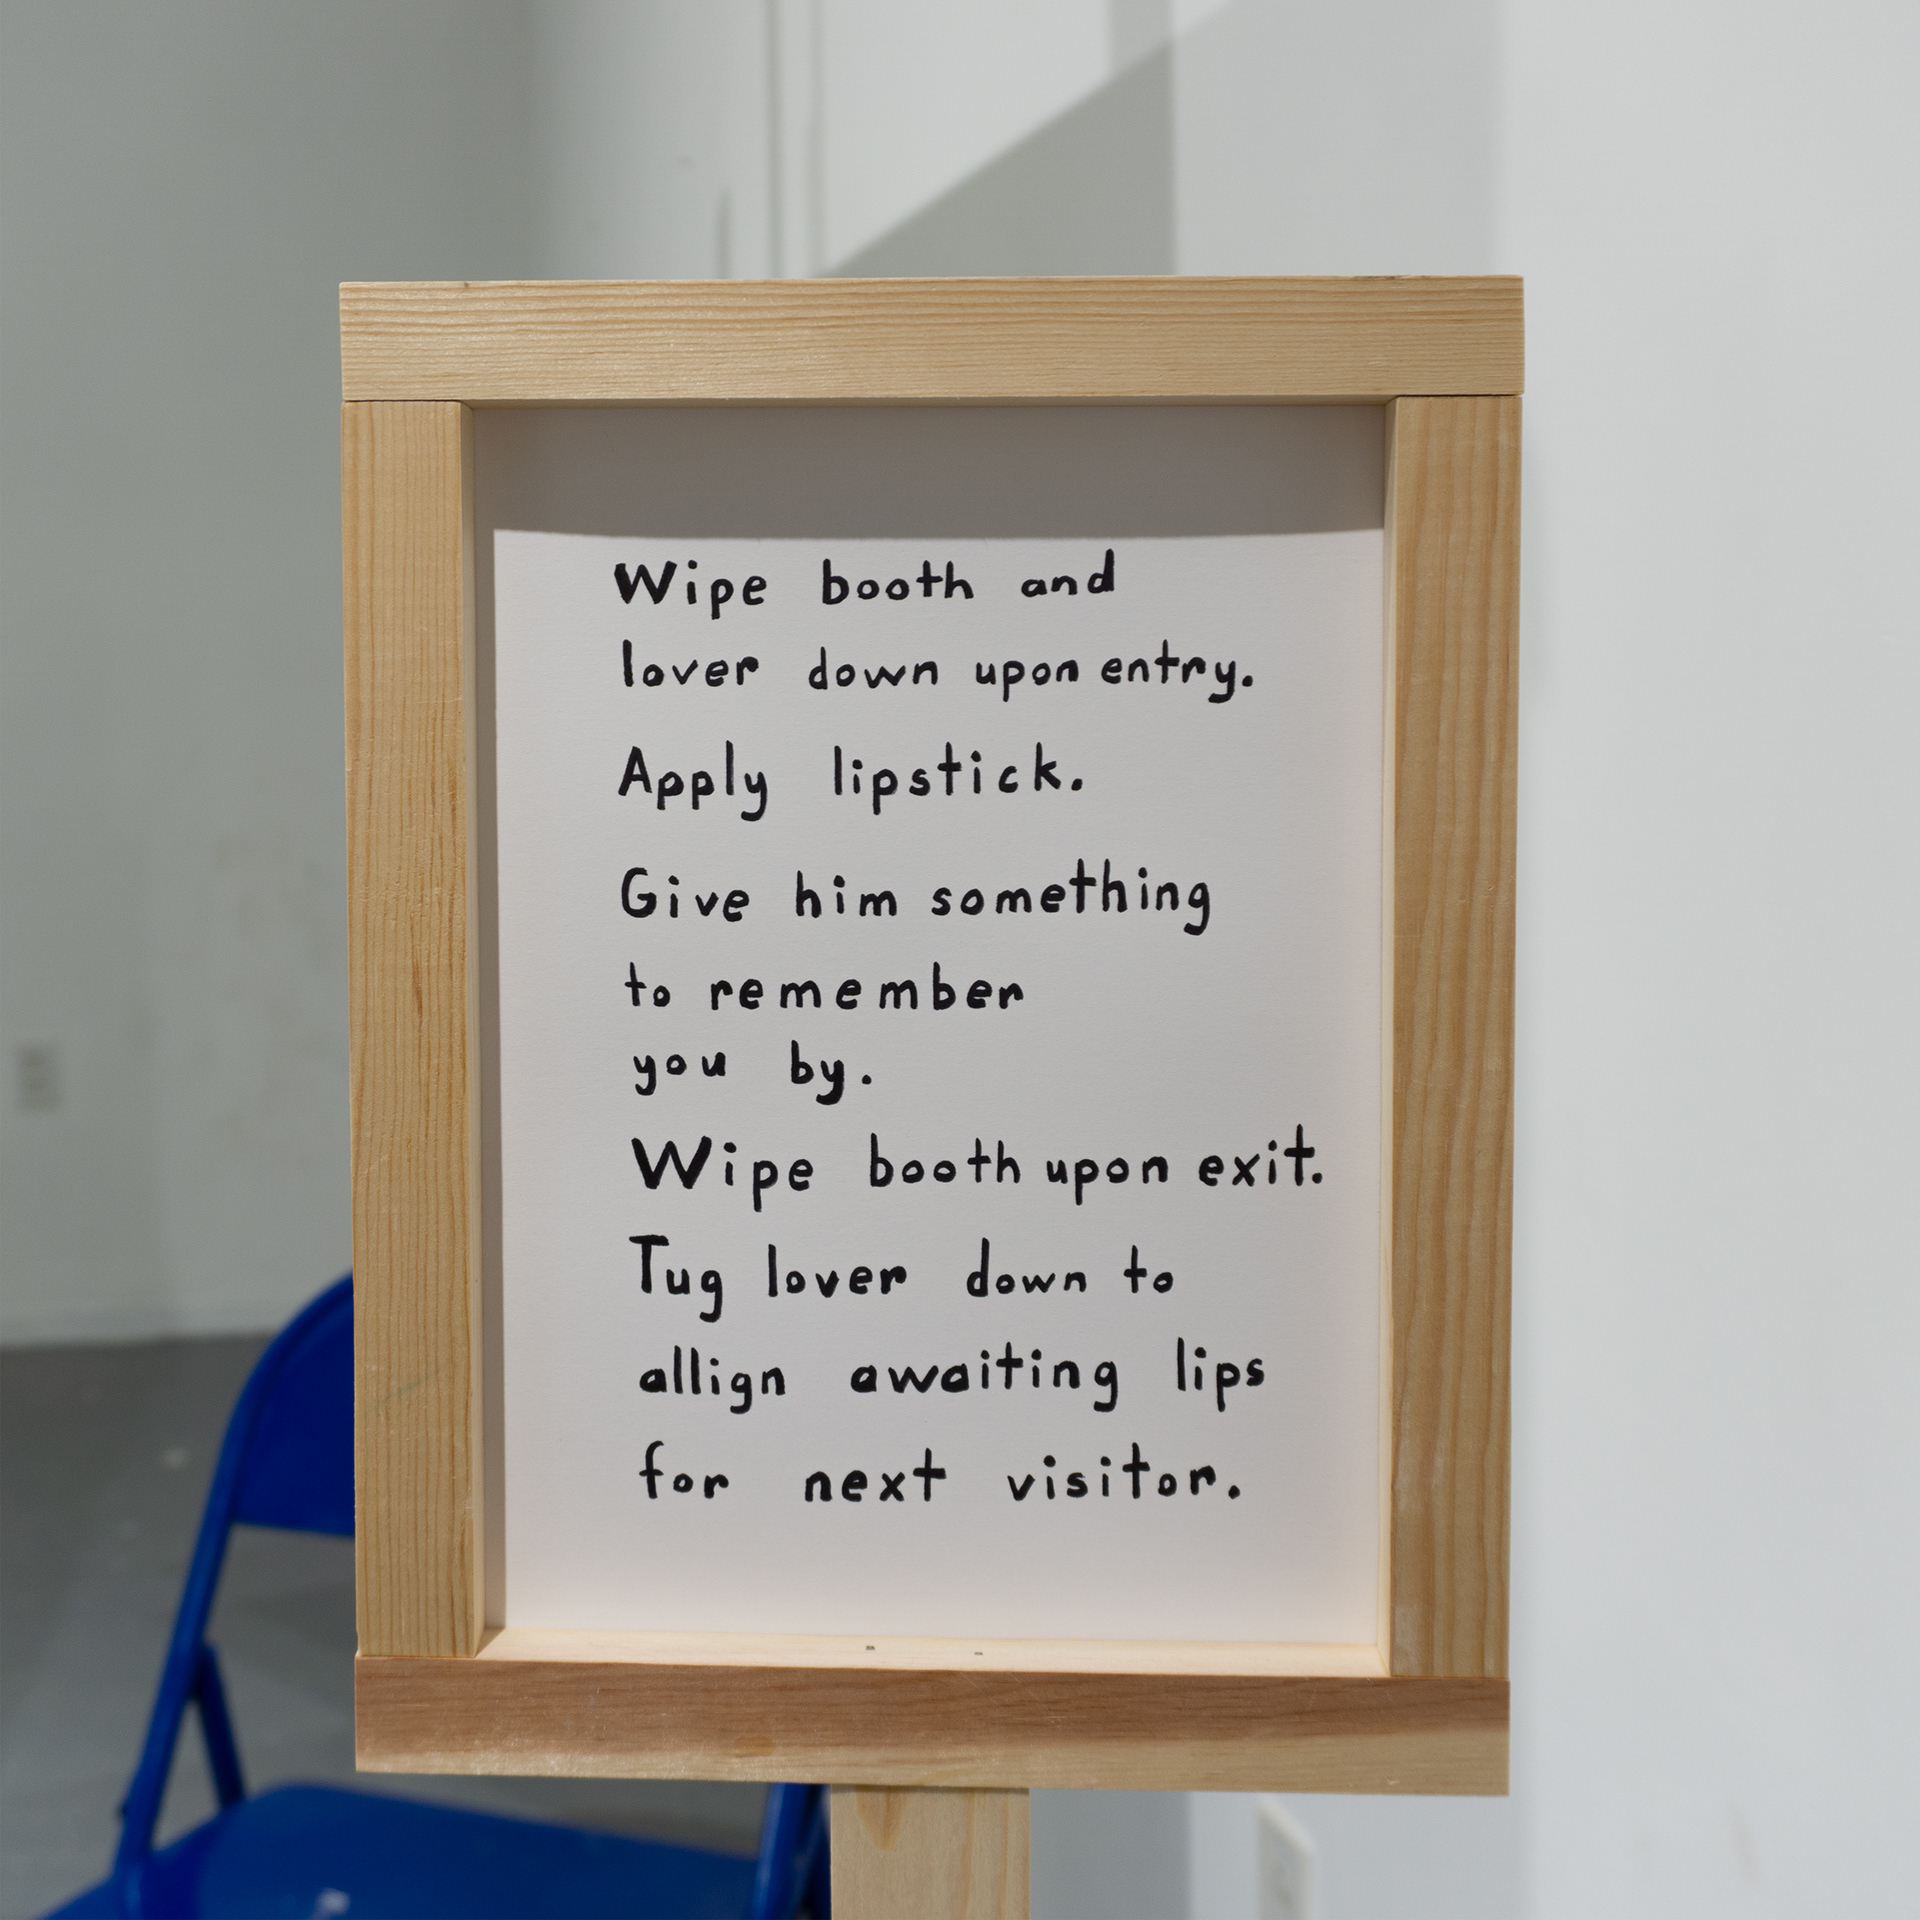 Wipe booth and
lover down upon entry.
Apply lipstick.
Give him something
to remember
you by.
Wipe booth upon exit.
Tug lover down to
allign awaiting lips
for next visitor.